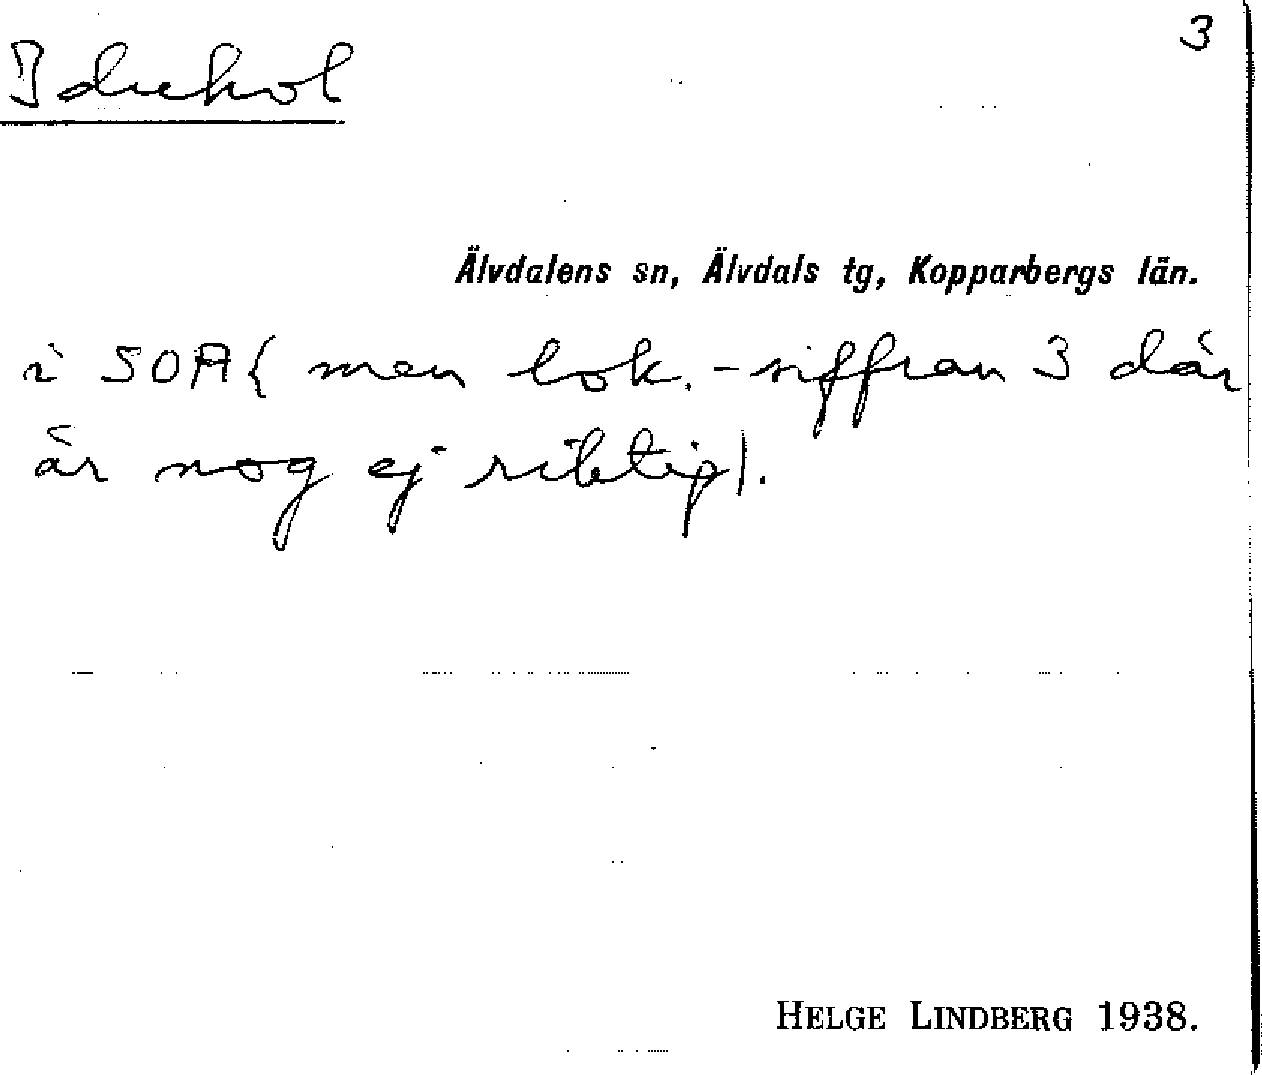 3
Idukol
Älvdalens sn, Älvdals tg, Kopparbergs län.
i SOA (men lok.-siffran 3 där
är nog ej riktig).
HELGE LINDBERG 1938.